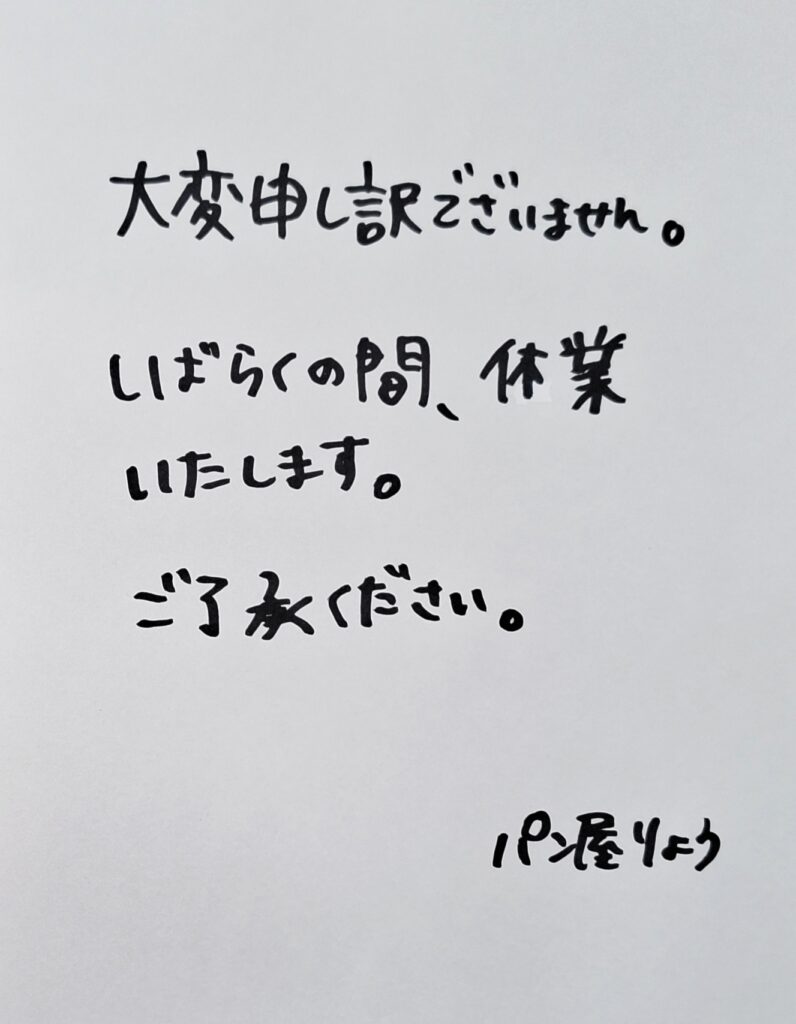 大変申し訳ございません。
しばらくの間、休業
いたします。
ご了承ください。
パン屋りょう